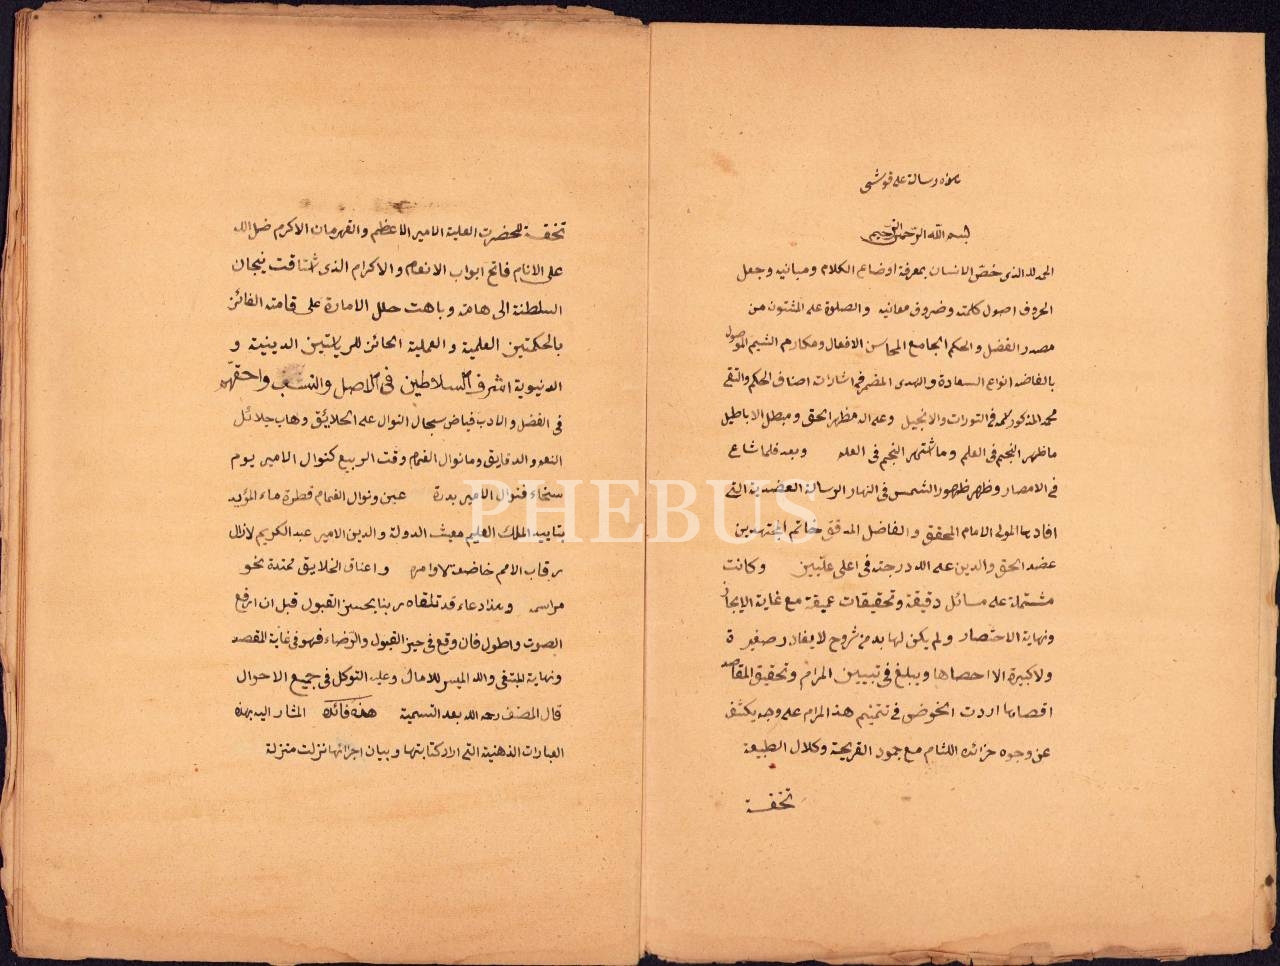 هذه رسالة على قوشجى
بسم الله الرحمن الرحيم
الحمد لله الذى خص الانسان بمعرفة اوضاع الكلام ومبانيه وجعل
الحروف اصول كلمته وضروف معانيه والصلوة على المشتق من
مصدر الفضل والحكم الجامع المحاسن الافعال ومكارم الشيم الموصول
بالفاضه انواع السعادة والهدى المضمر فى اشارات اصناف الحكم والتقى
محمد المذكور اسمه فى التورات والانجيل وعلى اله مظهر الحق ومبطل الاباطيل
ما ظهر النجم فى العلم وما اشتهر النجم فى العلم وبعد فلما شاع
فى الامصار وظهر ظهور الشمس فى النهار الرسالة العضدية التى
افادها المولى الامام المحقق والفاضل المدقق خاتم المجتهدين
عضد الحق والدين على الله درجته فى اعلى عليين وكانت
مشتملة على مسائل دقيقة وتحقيقات عميقة مع غاية الايجاز
ونهاية الاختصار ولم يكن لها بد من شروح لا يغادر صغيرة
ولا كبيرة الا احصاها ويبلغ فى تبيين المرام وتحقيق المقاصد
اقصاها اردت الخوض فى تتميم هذا المرام على وجه يكشف
عن وجوه خرائده اللثام مع جمود القريحة وكلال الطبيعة
تحفة
PHEBUS
تحفة لحضرت العلية الامير الاعظم والقهرمان الاكرم ضل الله
على الانام فاتح ابواب الانعام والاكرام الذى اشتاقت تيجان
السلطنة الى هامته وباهت حلل الامارة على قامته الفائز
بالحكمتين العلمية والعملية الحائز للرياستين الدينية و
الدنيوية اشرف السلاطين فى الاصل والنسب واحقهم
فى الفضل والادب فياض سجال النوال على الخلائق وهاب جلائل
النعم والدقايق وما نوال الغمام وقت الربيع كنوال الامير يوم
سخاء فنوال الامير بدرة عين ونوال الغمام قطرة ماء المؤيد
بتاييد الملك العليم مغيث الدولة والدين الامير عبد الكريم لا زال
رقاب الامم خاضعة لاوامره واعناق الخلايق ممتدة نحو
مراسمه وهذا دعاء قد تلقاه ربنا بحسن القبول قبل ان ارفع
الصوت واطول فان وقع فى حيز القبول والرضاء فهو فى غاية المقصد
ونهاية المبتغى والله الميسر للامال وعليه التوكل فى جميع الاحوال
قال المصنف رحمه الله بعد التسمية هذه فائدة المشار اليه بهذه
العبارات الذهنية التى اراد كتابتها وبيان اجزائها نزلت منزلة